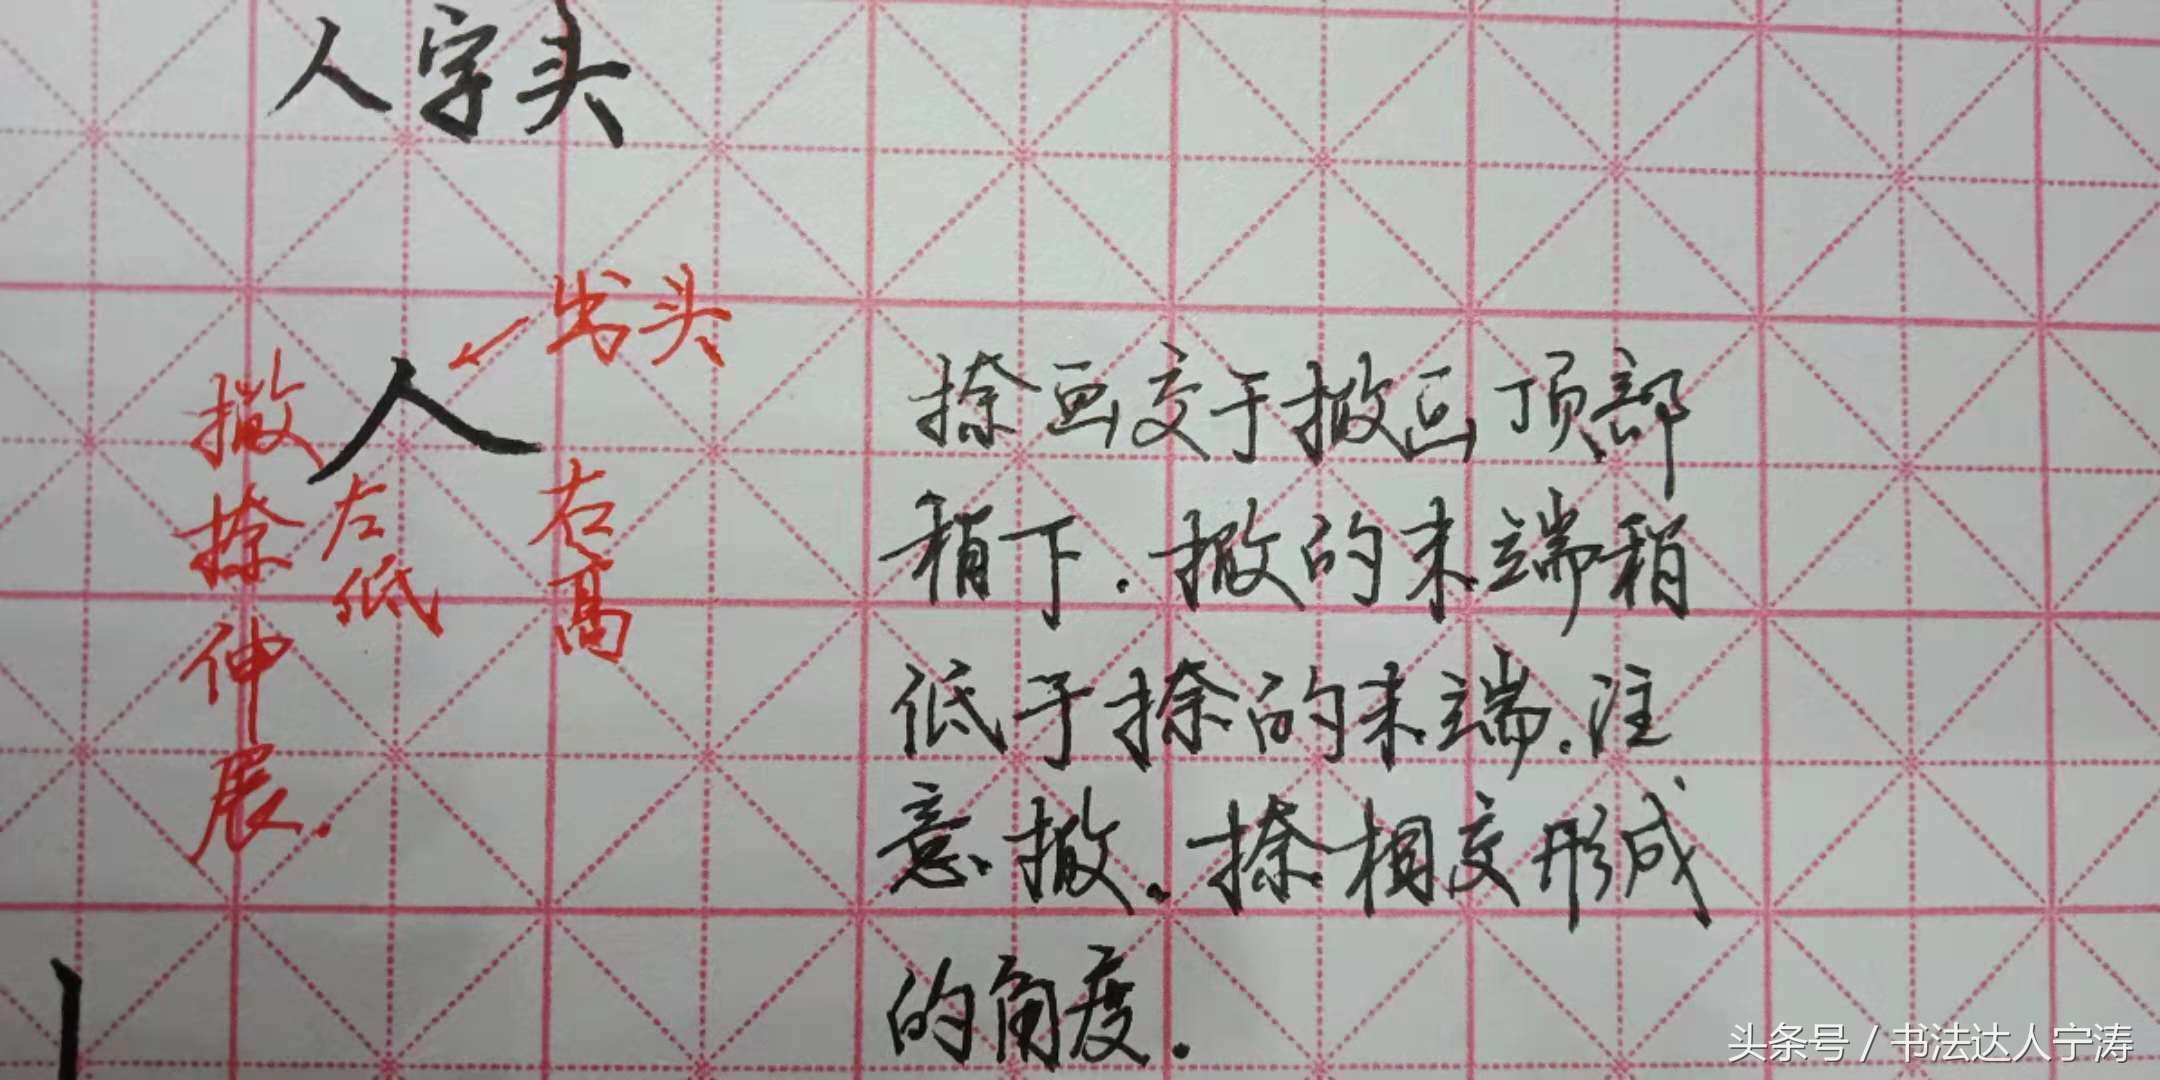 人字头
出头
人
撇捺伸展.
左低
右高
捺画交于撇画顶部
稍下.撇的末端稍
低于捺的末端.注
意撇.捺相交形成
的角度.
头条号 / 书法达人宁涛